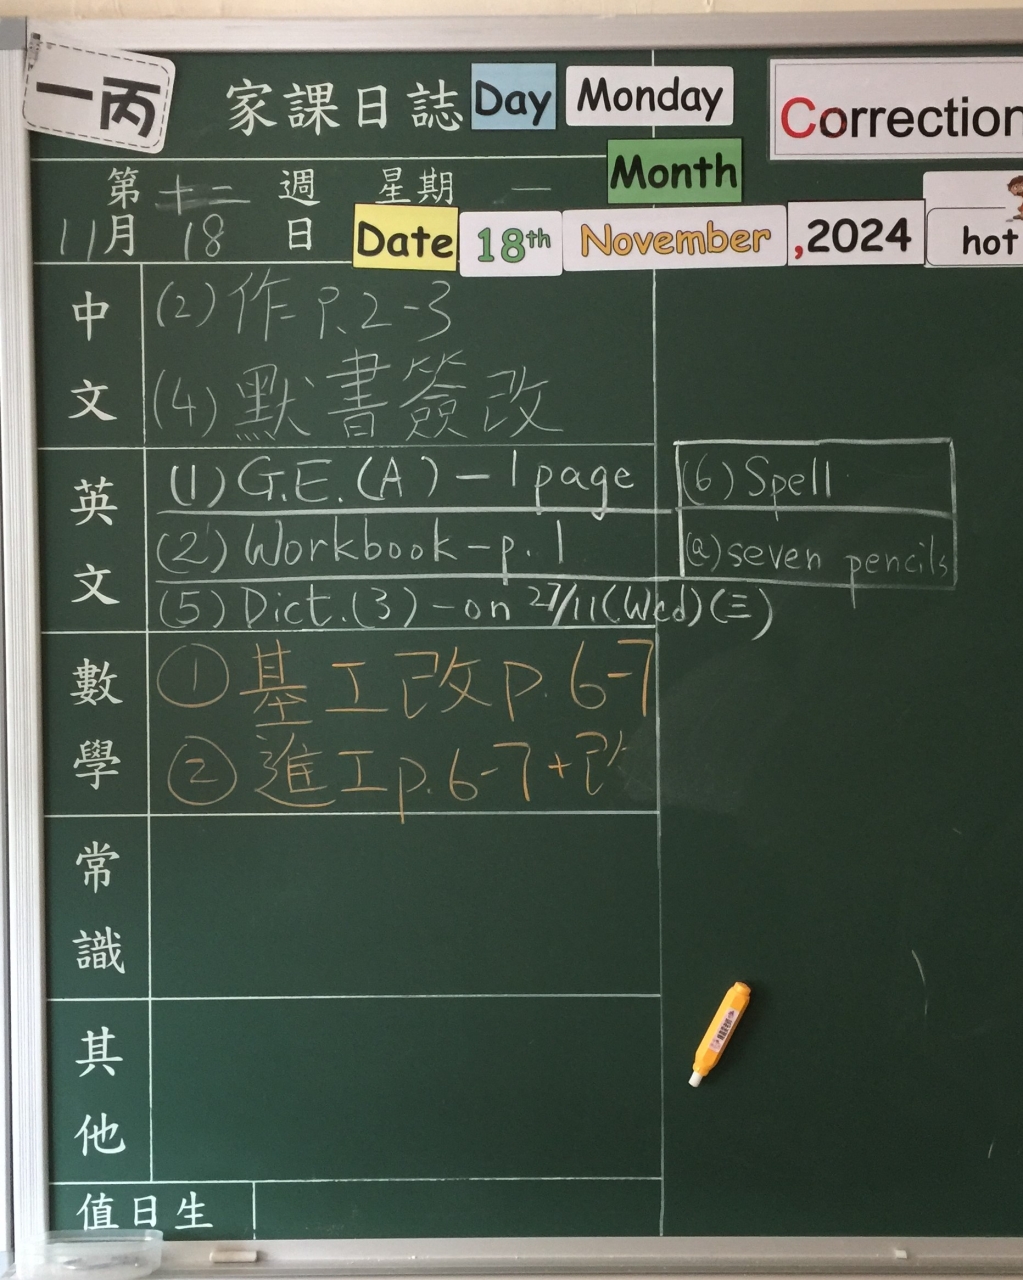 一丙
家課日誌 Day Monday
Correction
第十二週 星期一 Month
11月18日 Date 18th November ,2024 hot
中文
(2)作P.2-3
(4)默書簽改
英文
(1) G.E.(A) - 1 page
(2) Workbook - p.1
(5) Dict.(3) - on 27/11(Wed)(三)
(6) Spell
(a) seven pencils
數學
① 基工改p.6-7
② 進工p.6-7+改
常識
其他
值日生